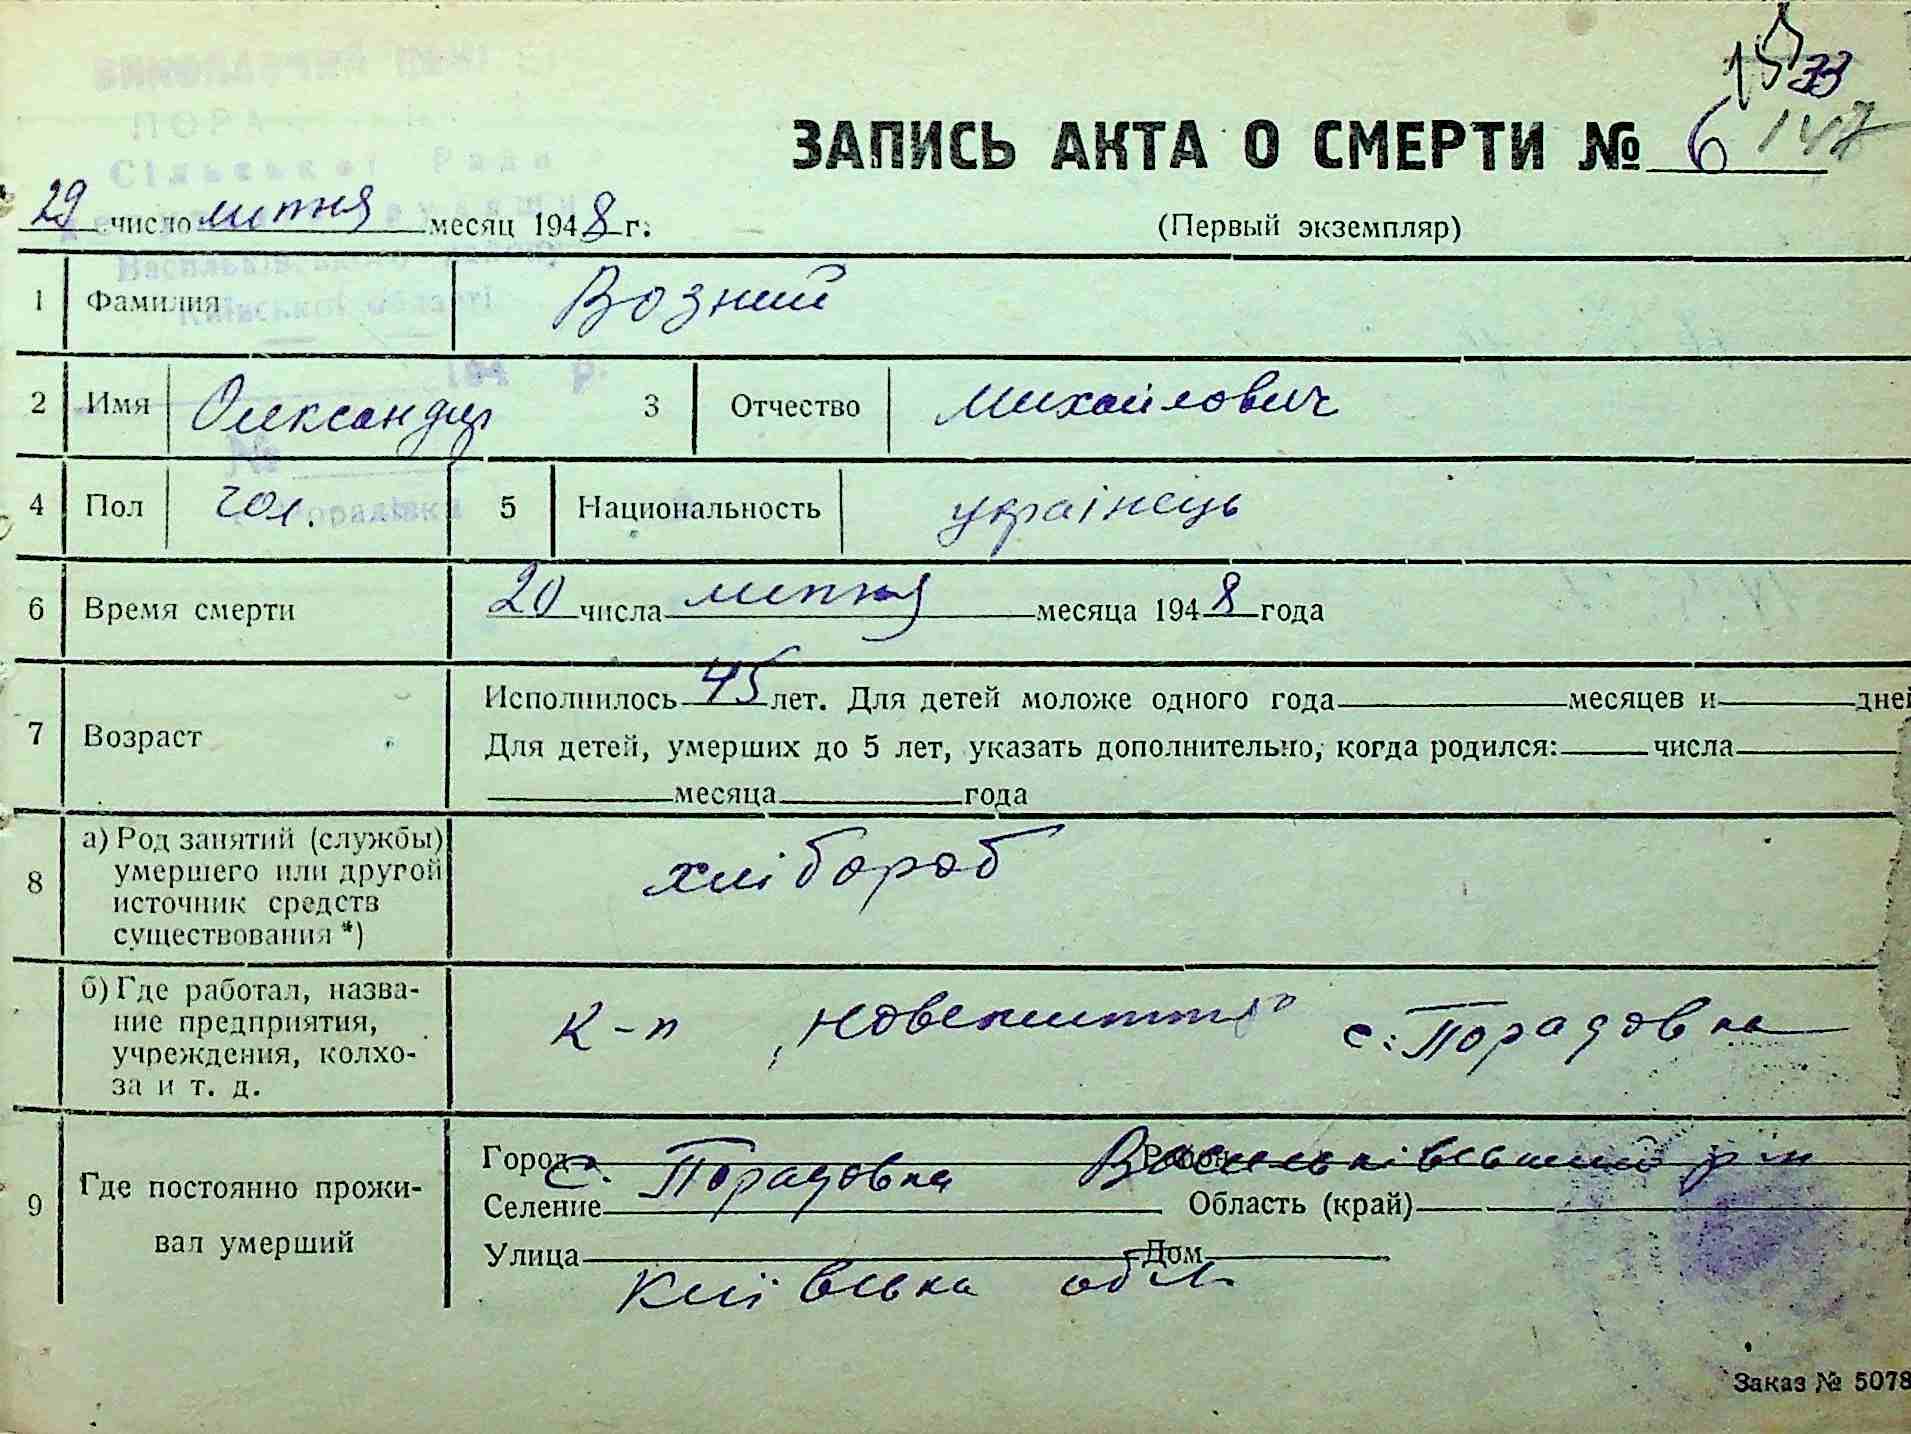 33
ЗАПИСЬ АКТА О СМЕРТИ № 6 147
29 число липня месяц 1948 г.
(Первый экземпляр)
1 Фамилия Возний
2 Имя Олександр 3 Отчество Михайлович
4 Пол чол. 5 Национальность українець
6 Время смерти 20 числа липня месяца 1948 года
7 Возраст Исполнилось 45 лет. Для детей моложе одного года месяцев и дней
Для детей, умерших до 5 лет, указать дополнительно, когда родился: числа
месяца года
8 а) Род занятий (службы) умершего или другой источник средств существования *) хлібороб
б) Где работал, название предприятия, учреждения, колхоза и т. д. к-п „Нове життя" с. Порадовка
9 Где постоянно проживал умерший
Город с. Порадовка Район Васильківський р-н
Селение Область (край)
Улица Дом
Київська обл.
Виконавчий
Сільської Ради
Васильківського району
Київської області
194 р.
№
Порадівка
Заказ № 5078